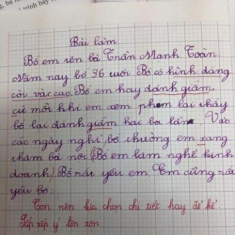 Bài làm
Bố em tên là Trần Mạnh Toàn
Năm nay bố 36 tuổi Bố có hình dáng
cao Bố em hay đánh giấm
cứ mỗi khi em xem phim lại thấy
bố lại đánh giấm hai ba lần Vào
các ngày nghỉ bố thường em sang
thăm bà nội Bố em làm nghề kinh
doanh Bố rất yêu em Em cũng rất
yêu bố
Con nên lựa chọn chi tiết hay để kể
Sắp xếp ý lộn xộn